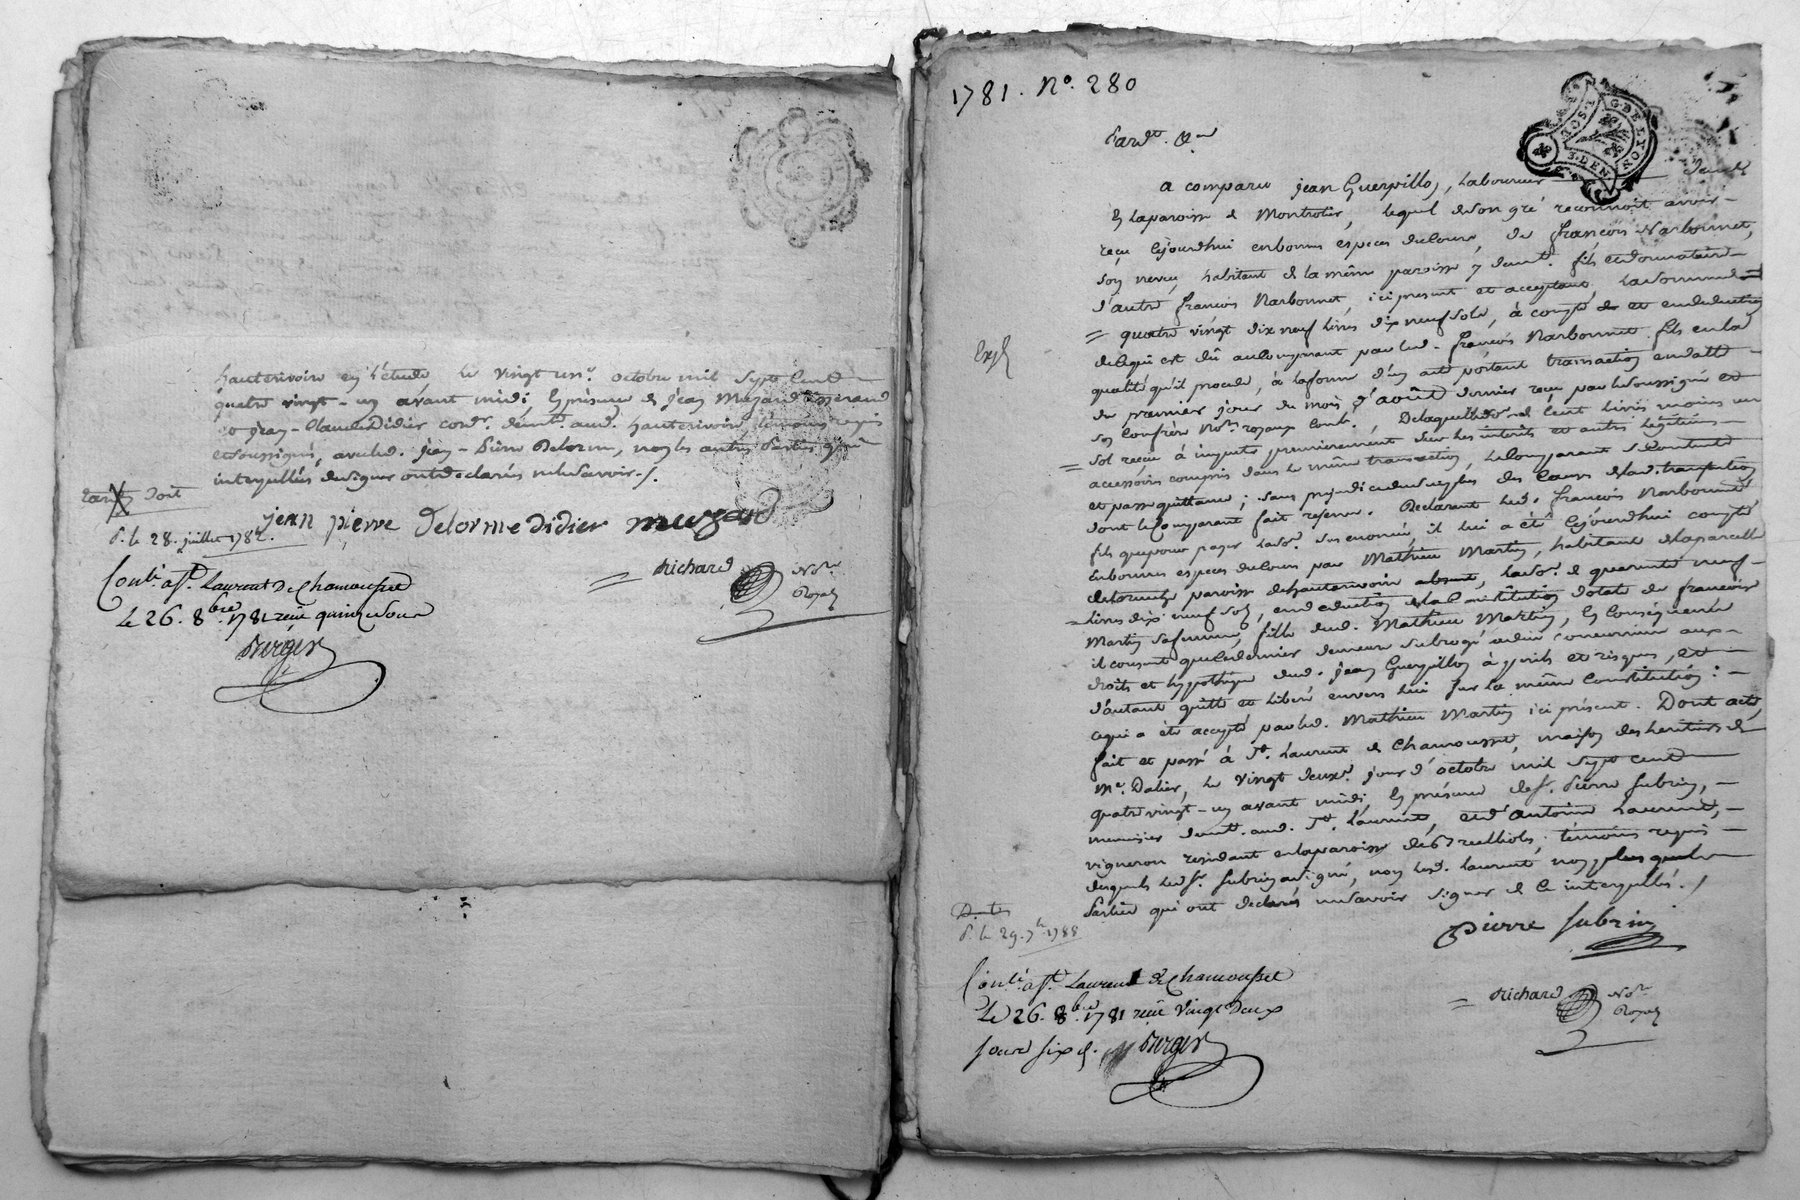 hauterivoire en l'étude le vingt un.e octobre mil sept cent
quatre vingt-un avant midi En présence de jean Muzard
et jean-Claude Didier demt. aud. hauterivoire, témoins requis
et soussignés, avec led. jean-Pierre Delorme, non les autres Parties qui
interpellées de signer ont déclaré ne le savoir./.
doit
P. le 28. juillet 1782.
jean pierre Delorme didier muzard
Richard No.re
Royal
Conlé. a St. Laurent De Chamousset
le 26. 8bre. 1781 reçu quinze sous
Berger
1781. No. 280
Pardt. &a
a comparu jean Guerpillon, Laboureur demt.
En la paroisse de Montrotier, lequel de son gré reconnoit avoir
reçu cejourdhui en bonnes especes de cours, de françois Narbonnet,
son neveu, habitant de la même paroisse y demt. fils et donnataire
d'autre françois Narbonnet, ici present et acceptant, la somme de
quatre vingt dix neuf livres dix neuf sols, à compte et en deduction
de ce qui est dû au comparant par led. françois Narbonnet fils en la
qualité qu'il procede, à la forme d'un acte portant transaction en datte
du premier jour du mois d'août dernier reçu par le soussigné et
son Confrère No.res royaux, De laquelle so. de Cent livres moins un
sol reçue à imputer premierement sur les interêts et autres légitimes
accessoires compris dans la même transaction, le Comparant se Contente
et passe quittance; sans préjudice du surplus des Cours de lad. transaction
dont le Comparant fait reserve. Declarant led. françois Narbonnet
fils que pour payer lad. so. sus enoncée, il lui a été cejourdhui compté
En bonnes especes de cours par Mathieu Martin, habitant de la parcelle
de lormage paroisse de hauterivoire absent, la so. de quarante neuf
livres dix neuf sols, en deduction de la Constitution dotale de françoise
Martin sa femme, fille dud. Mathieu Martin, En Conséquence
il consent que ce dernier demeure subrogé à due concurrence aux
droits et hypothèque dud. jean Guerpillon à perils et risques, et
d'autant quitte et libéré envers lui sur la même Constitution:
ce qui a été accepté par led. Mathieu Martin ici présent. Dont acte,
fait et passé à St. Laurent de Chamousset, maison des heritiers de
Me. Dalier, le vingt deuxe. jour d'octobre mil sept cent
quatre vingt-un avant midi, En présence de sr. Pierre Subrin,
menuisier demt. aud. St. Laurent, et d'Antoine Laurent,
vigneron residant en la paroisse de Brullioles, témoins requis
desquels led. sr. Subrin a signé, non led. Laurent non plus que les
Parties qui ont declaré ne savoir signer de ce interpellés./
Expé
pierre subrin
P. le 29. 7bre. 1788
Richard No.re
Royal
Conlé. a St. Laurent De Chamousset
Le 26. 8bre. 1781 reçu Vingt Deux
sous six d. Berger
G. DE LYON
2. SOLS
3. DEN